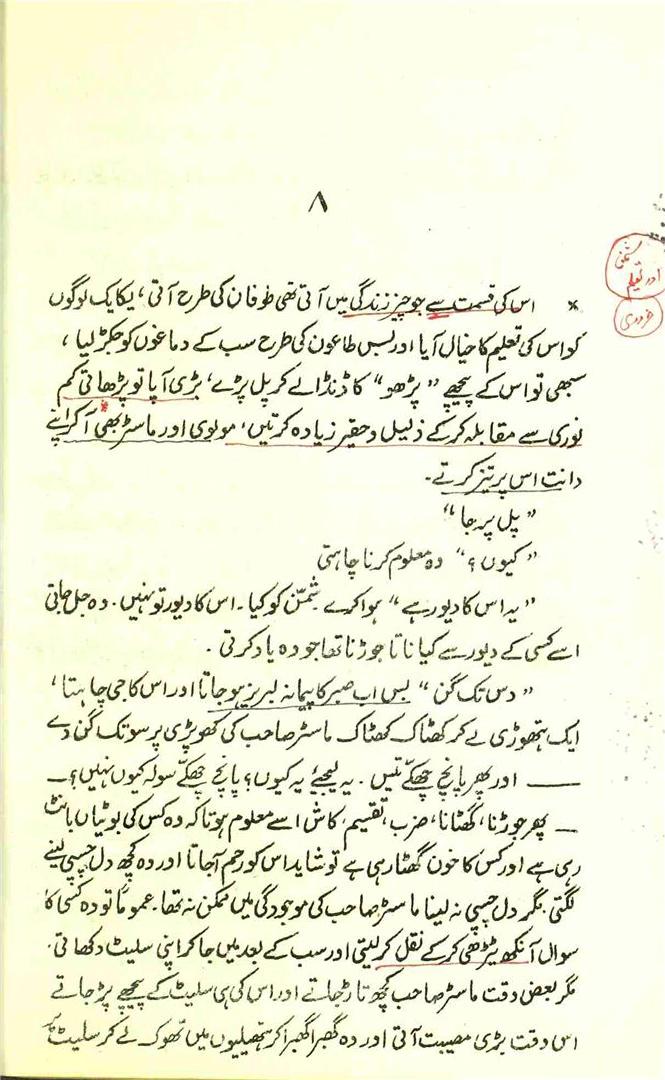 ۸
شمن
اور تعلیم
ضروری
* اس کی قسمت سے جو چیز زندگی میں آتی تھی طوفان کی طرح آتی، یکایک لوگوں
کو اس کی تعلیم کا خیال آیا اور بس طاعون کی طرح سب کے دماغوں کو جکڑ لیا،
سبھی تو اس کے پیچھے ”پڑھو“ کا ڈنڈا لے کر پل پڑے، بڑی آپا تو پڑھاتی کم
نوری سے مقابلہ کر کے ذلیل و حقیر زیادہ کرتیں، مولوی اور ماسٹر بھی آ کر اپنے
دانت اس پر تیز کرتے۔
”پل پر جا“
”کیوں؟“ وہ معلوم کرنا چاہتی
”یہ اس کا دیور ہے“ ہوا کرے شمّن کو کیا۔ اس کا دیور تو نہیں۔ وہ جل جاتی
اسے کسی کے دیور سے کیا ناتا جوڑنا تھا جو وہ یاد کرتی۔
”دس تک گن“ بس اب صبر کا پیمانہ لبریز ہو جاتا اور اس کا جی چاہتا،
ایک ہتھوڑی لے کر کھٹاک کھٹاک ماسٹر صاحب کی کھوپڑی پر سو تک گن دے
—— اور پھر پانچ چھکے تیس۔ یہ لیجئے یہ کیوں؟ پانچ چھکے سولہ کیوں نہیں؟—
— پھر جوڑنا، گھٹانا، ضرب، تقسیم، کاش اسے معلوم ہوتا کہ وہ کس کی بوٹیاں بانٹ
رہی ہے اور کس کا خون گھٹا رہی ہے تو شاید اس کو رحم آ جاتا اور وہ کچھ دل چسپی لینے
لگتی۔ مگر دل چسپی نہ لینا ماسٹر صاحب کی موجودگی میں ممکن نہ تھا۔ عموماً تو وہ کسی کا
سوال آنکھ ٹیڑھی کر کے نقل کر لیتی اور سب کے بعد میں جا کر اپنی سلیٹ دکھاتی۔
مگر بعض وقت ماسٹر صاحب کچھ تاڑ جاتے اور اس کی ہی سلیٹ کے پیچھے پڑ جاتے
اس وقت بڑی مصیبت آتی اور وہ گھبرا گھبرا کر ہتھیلیوں میں تھوک لے کر سلیٹ